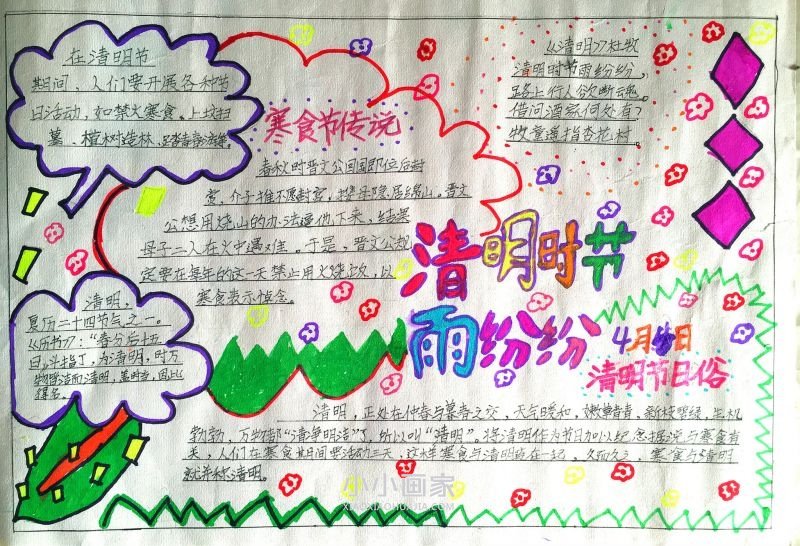 在清明节
期间，人们要开展各种节
日活动，如禁火寒食。上坟扫
墓、植树造林、
寒食节传说
春秋时晋文公回国即位后封
赏、介子推不愿封赏，携母隐居绵山。晋文
公想用烧山的办法逼他下来，结果
母子二人在火中遇难。于是，晋文公规
定要在每年的这一天禁止用火烧饭，以
寒食表示悼念。
《清明》杜牧
清明时节雨纷纷，
路上行人欲断魂。
借问酒家何处有？
牧童遥指杏花村。
清明时节
雨纷纷
4月 日
清明节日俗
清明，
夏历二十四节气之一。
《历书》："春分后十五
日，斗指丁，为清明，时万
物 洁而清明，盖时当 因此
得名。
清明，正处在仲春与暮春之交，天气暖和， 新枝翠绿，生机
勃勃，万物都"清净明洁"了，所以叫"清明"。将清明作为节日加以纪念据说与寒食有
关，人们在寒食其间要活动三天，这样寒食与清明连在一起，久而久之，寒食与清明
就并称清明。
小小画家
XIAOXIAOHUAJIA.COM